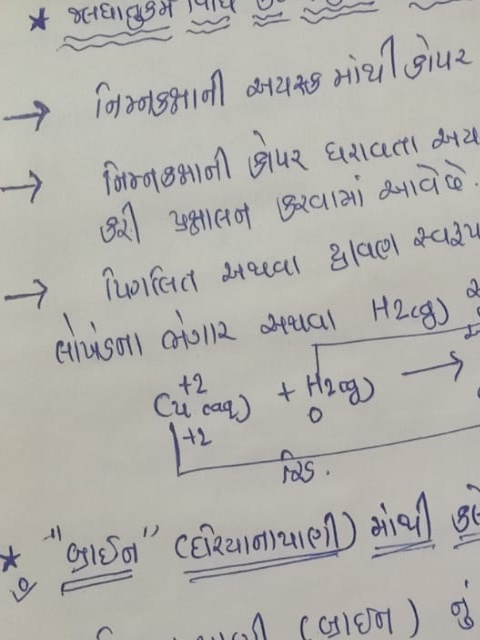 * જલધાતુકર્મ વિધિ
→ નિમ્નકક્ષાની અયસ્ક માંથી કોપર
→ નિમ્નકક્ષાની કોપર ધરાવતા અય
કરી પ્રક્ષાલન કરવામાં આવેછે.
→ પિગલિત અથવા દ્રાવણ સ્વરૂપ
લોખંડના ભંગાર અથવા H2(g)
Cu+2(aq) + H2(g) →
+2 0
રિડ.
* "બ્રાઈન" (દરિયાનાપાણી) માંથી કલો
(બ્રાઈન) નું